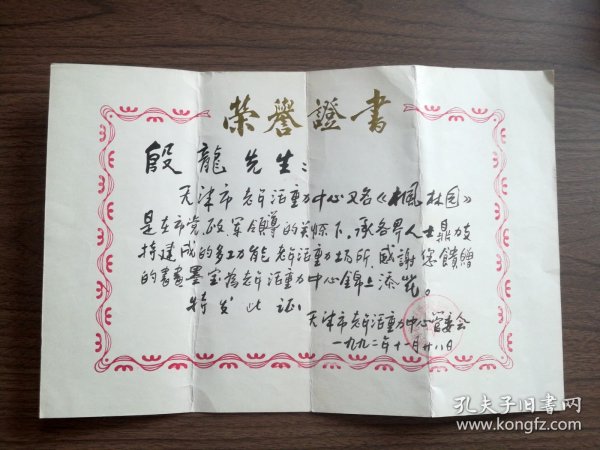 荣誉證書
殷龍先生：
天津市老年活動中心又名《楓林园》
是在市党、政、军領導的关怀下，承各界人士鼎力支
持建成的多功能老年活動場所，感謝您饋贈
的書畫墨宝，為老年活動中心錦上添花。
特发此证：
天津市老年活動中心管委会
一九九二年十一月廿八日
孔夫子旧書网
www.kongfz.com